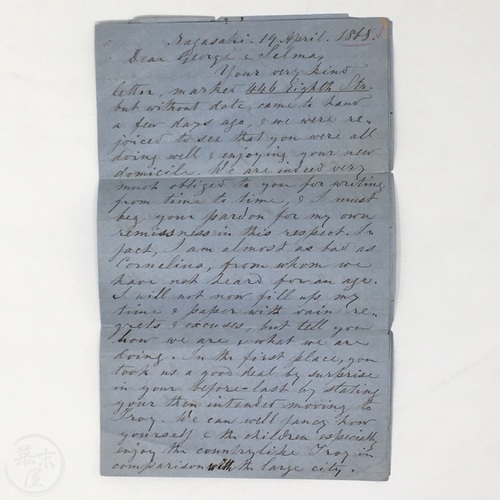 Nagasaki. 19 April. 1868.
Dear George & Selma,
Your very kind
letter, marked 446 Eighth Str.
but without date, came to hand
a few days ago, & we were re-
joiced to see that you were all
doing well & enjoying your new
domicile. We are indeed very
much obliged to you for writing
from time to time, & I must
beg your pardon for my own
remissness in this respect. In
fact, I am almost as bad as
Cornelius, from whom we
have not heard for an age.
I will not now fill up my
time & paper with vain re-
grets & excuses, but tell you
how we are & what we are
doing. In the first place, you
took us a good deal by surprise
in your before-last by stating
your then intended moving to
Troy. We can well fancy how
yourself & the children especially
enjoy the countrylike Troy in
comparison with the large city.
幕末屋